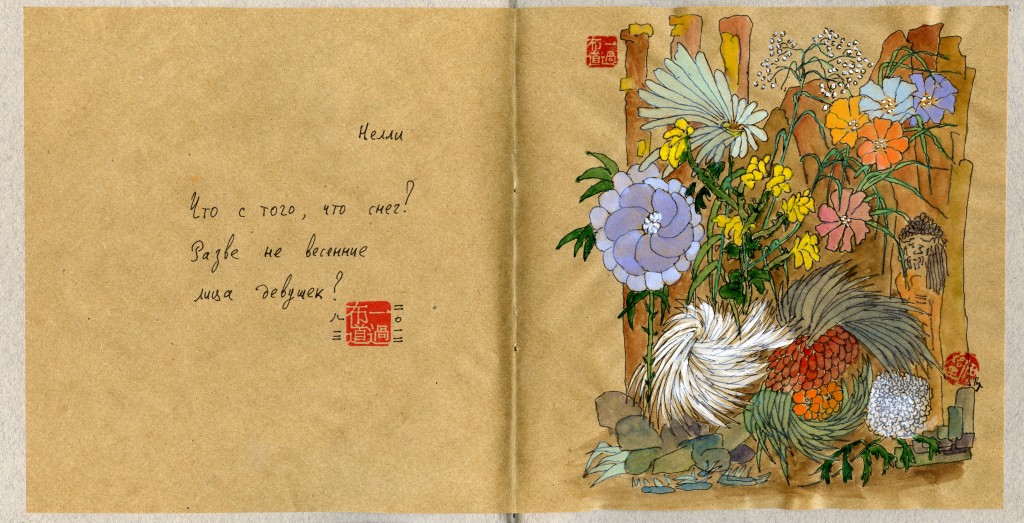 Нелли
Что с того, что снег?
Разве не весенние
лица девушек?
一過
布道
二〇一三
八三
一過
布道